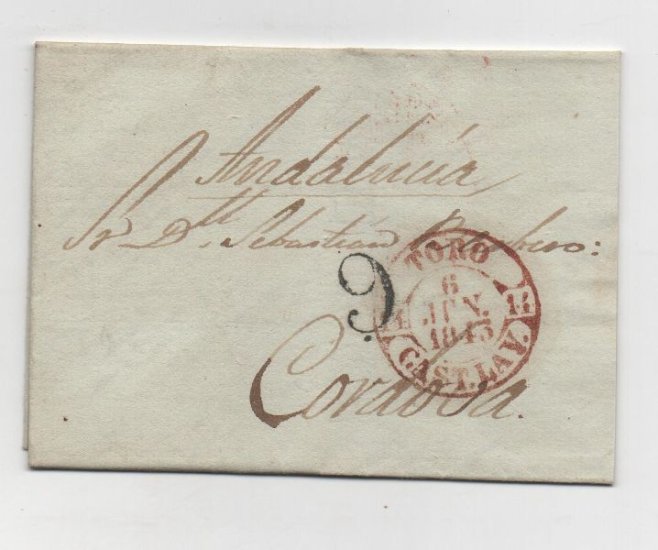 Andalucía
Sr. Dn. Sebastián
TORO
6
JUN.
1845
CAST. LA V.
9
Cordova.